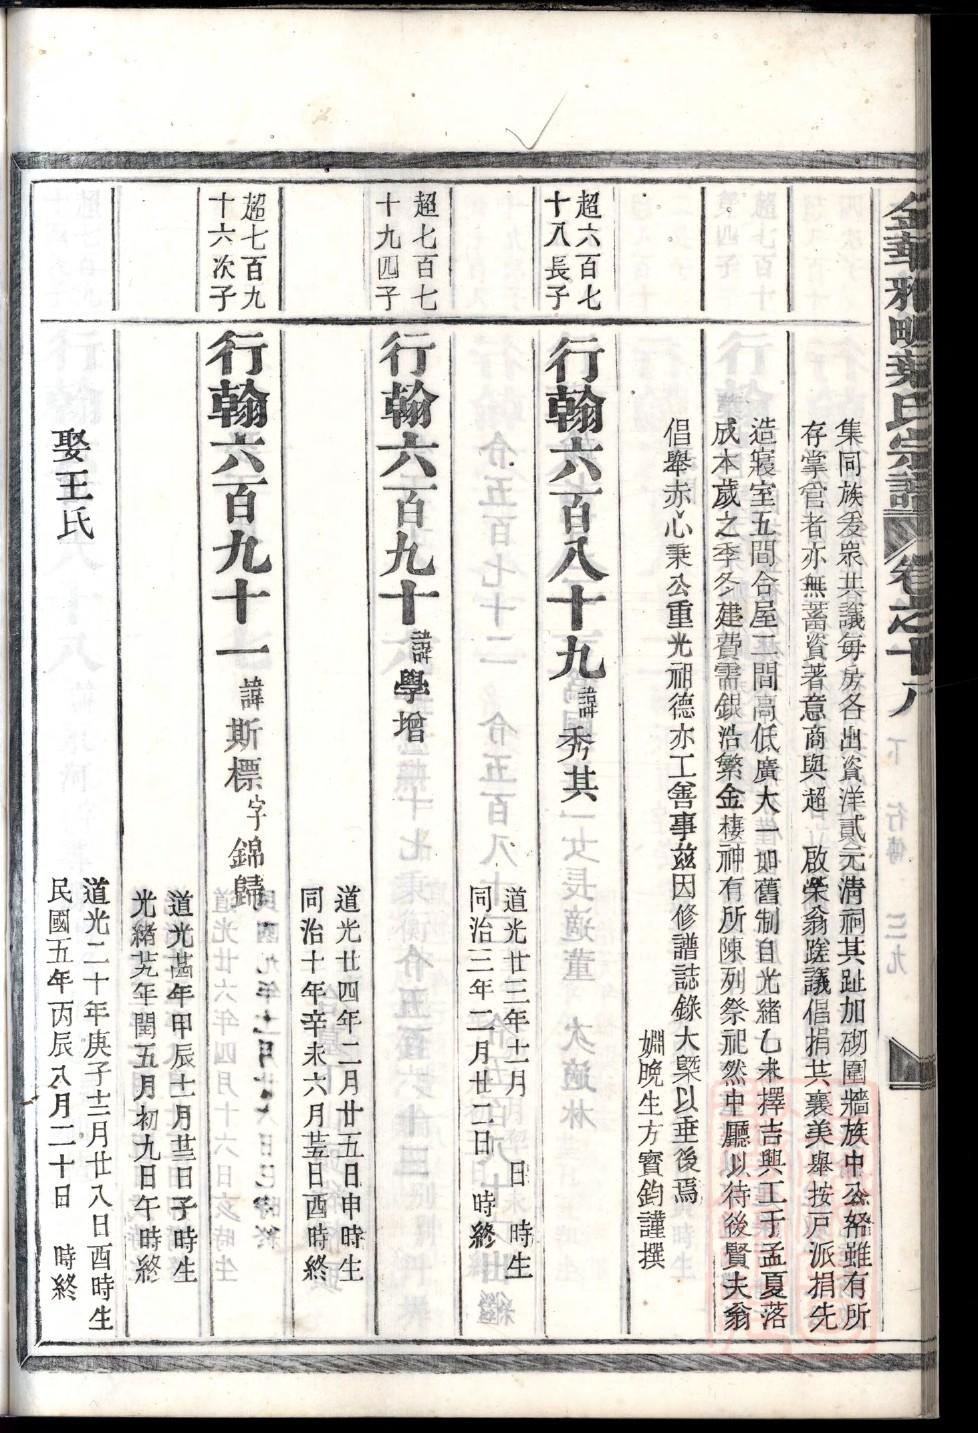 金華雅畈葉氏宗譜 卷之十八
集同族爰衆共議每房各出資洋貳元清祠其趾加砌圍牆族中公帑雖有所
存掌管者亦無蓄資著意商與超 啟榮翁蹉議倡捐共襄美舉按戸派捐先
造寢室五間合屋三間高低廣大一如舊制自光緒乙未擇吉興工于孟夏落
成本歲之季冬建費需銀浩繁金棲神有所陳列祭祀然中廳以待後賢夫翁
倡舉赤心秉公重光祖德亦工善事茲因修譜誌錄大槩以垂後焉
姻晚生方寶鈞謹撰
超六百七
十八長子
行翰六百八十九 諱秀其
道光廿三年十一月 日 時生
同治三年二月廿二日 時終
超七百七
十九四子
行翰六百九十 諱學增
道光廿四年二月廿五日申時生
同治十年辛未六月 日酉時終
超七百九
十六次子
行翰六百九十一 諱斯標字錦歸
道光 年甲辰十一月 日子時生
光緒 年閏五月初九日午時終
娶王氏
道光二十年庚子十二月廿八日酉時生
民國五年丙辰八月二十日 時終